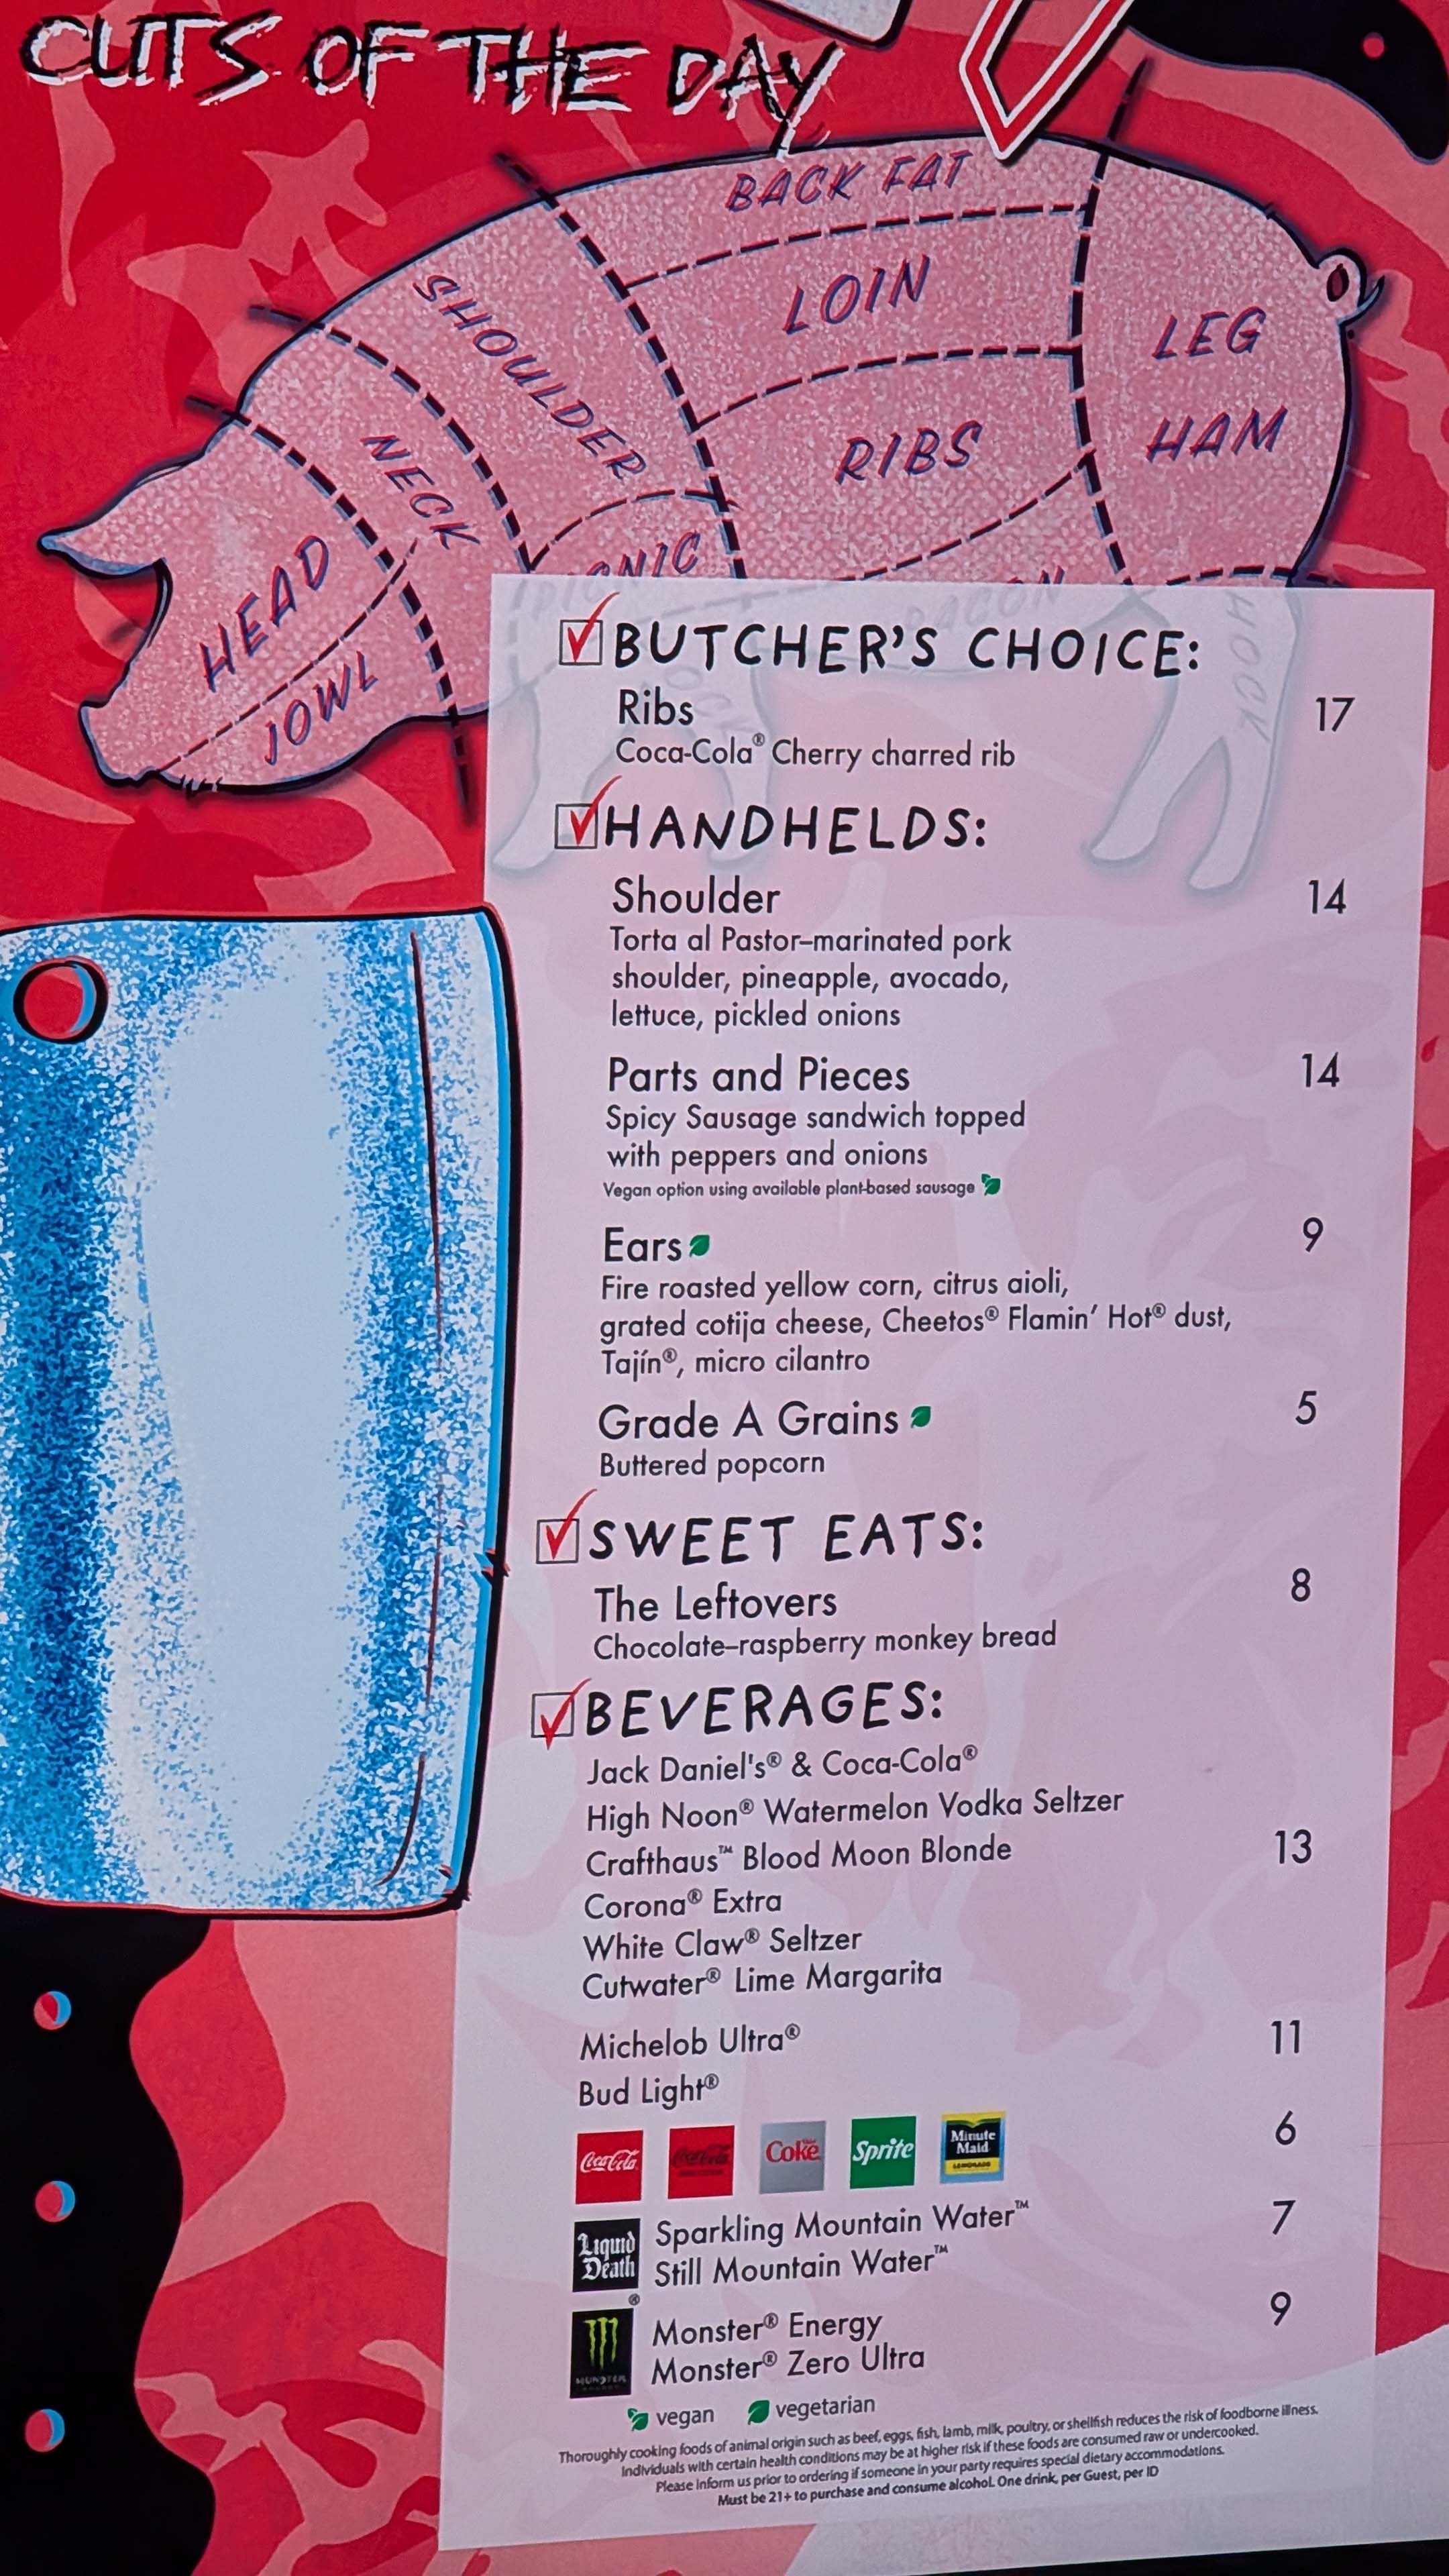 CUTS OF THE DAY
BACK FAT
LOIN
SHOULDER
LEG
HAM
RIBS
NECK
HEAD
JOWL
PICNIC
BACON
HOCK
HOCK
BUTCHER'S CHOICE:
Ribs 17
Coca-Cola® Cherry charred rib
HANDHELDS:
Shoulder 14
Torta al Pastor–marinated pork
shoulder, pineapple, avocado,
lettuce, pickled onions
Parts and Pieces 14
Spicy Sausage sandwich topped
with peppers and onions
Vegan option using available plant-based sausage
Ears 9
Fire roasted yellow corn, citrus aioli,
grated cotija cheese, Cheetos® Flamin' Hot® dust,
Tajín®, micro cilantro
Grade A Grains 5
Buttered popcorn
SWEET EATS:
The Leftovers 8
Chocolate–raspberry monkey bread
BEVERAGES:
Jack Daniel's® & Coca-Cola®
High Noon® Watermelon Vodka Seltzer
Crafthaus™ Blood Moon Blonde 13
Corona® Extra
White Claw® Seltzer
Cutwater® Lime Margarita
Michelob Ultra® 11
Bud Light®
Coca-Cola Coca-Cola Coke Sprite Minute Maid LEMONADE 6
Liquid Death® Sparkling Mountain Water™ 7
Still Mountain Water™
MONSTER Monster® Energy 9
Monster® Zero Ultra
vegan vegetarian
Thoroughly cooking foods of animal origin such as beef, eggs, fish, lamb, milk, poultry, or shellfish reduces the risk of foodborne illness.
Individuals with certain health conditions may be at higher risk if these foods are consumed raw or undercooked.
Please inform us prior to ordering if someone in your party requires special dietary accommodations.
Must be 21+ to purchase and consume alcohol. One drink, per Guest, per ID